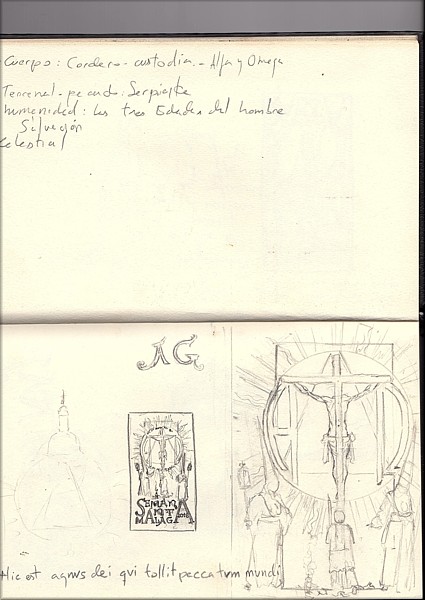 Cuerpo: Cordero - custodia. - Alfa y Omega
Terrenal - pecado: Serpiente
humanidad: las tres Edades del hombre
Salvación
Celestial
AG
SEMANA
SANTA
MALAGA
Hic est agnus dei qui tollit peccatum mundi